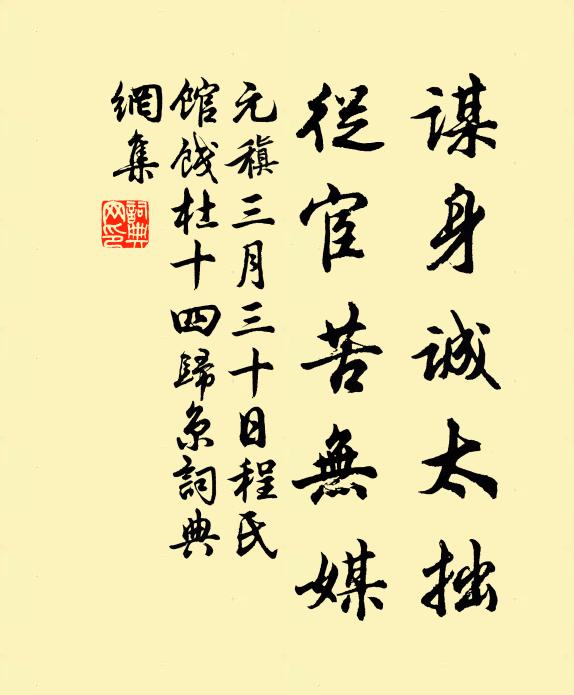 謀身誠太拙
從宦苦無媒
元稹三月三十日程氏
館餞杜十四歸京詞典
網集
詞典
网印